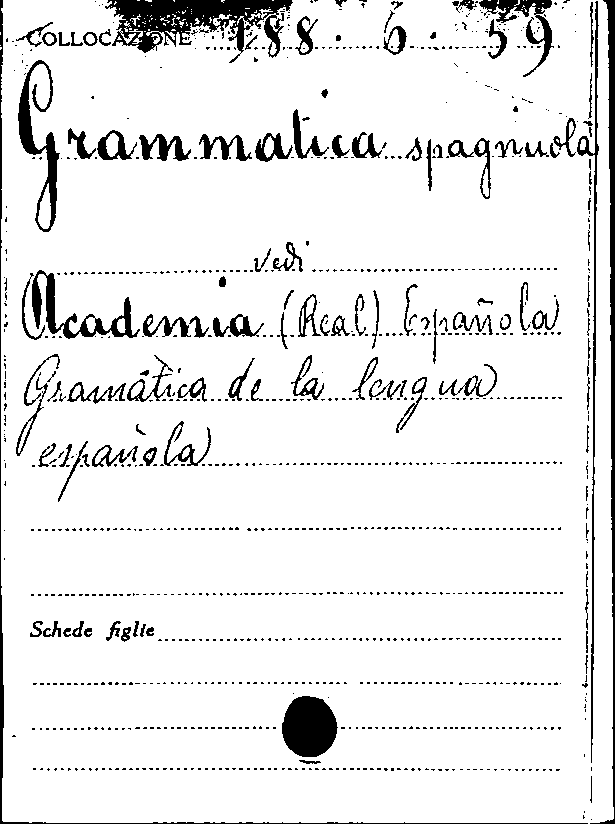 COLLOCAZIONE 188. 6. 59
Grammatica spagnuola
vedi
Academia (Real) Española
Gramática de la lengua
española
Schede figlie